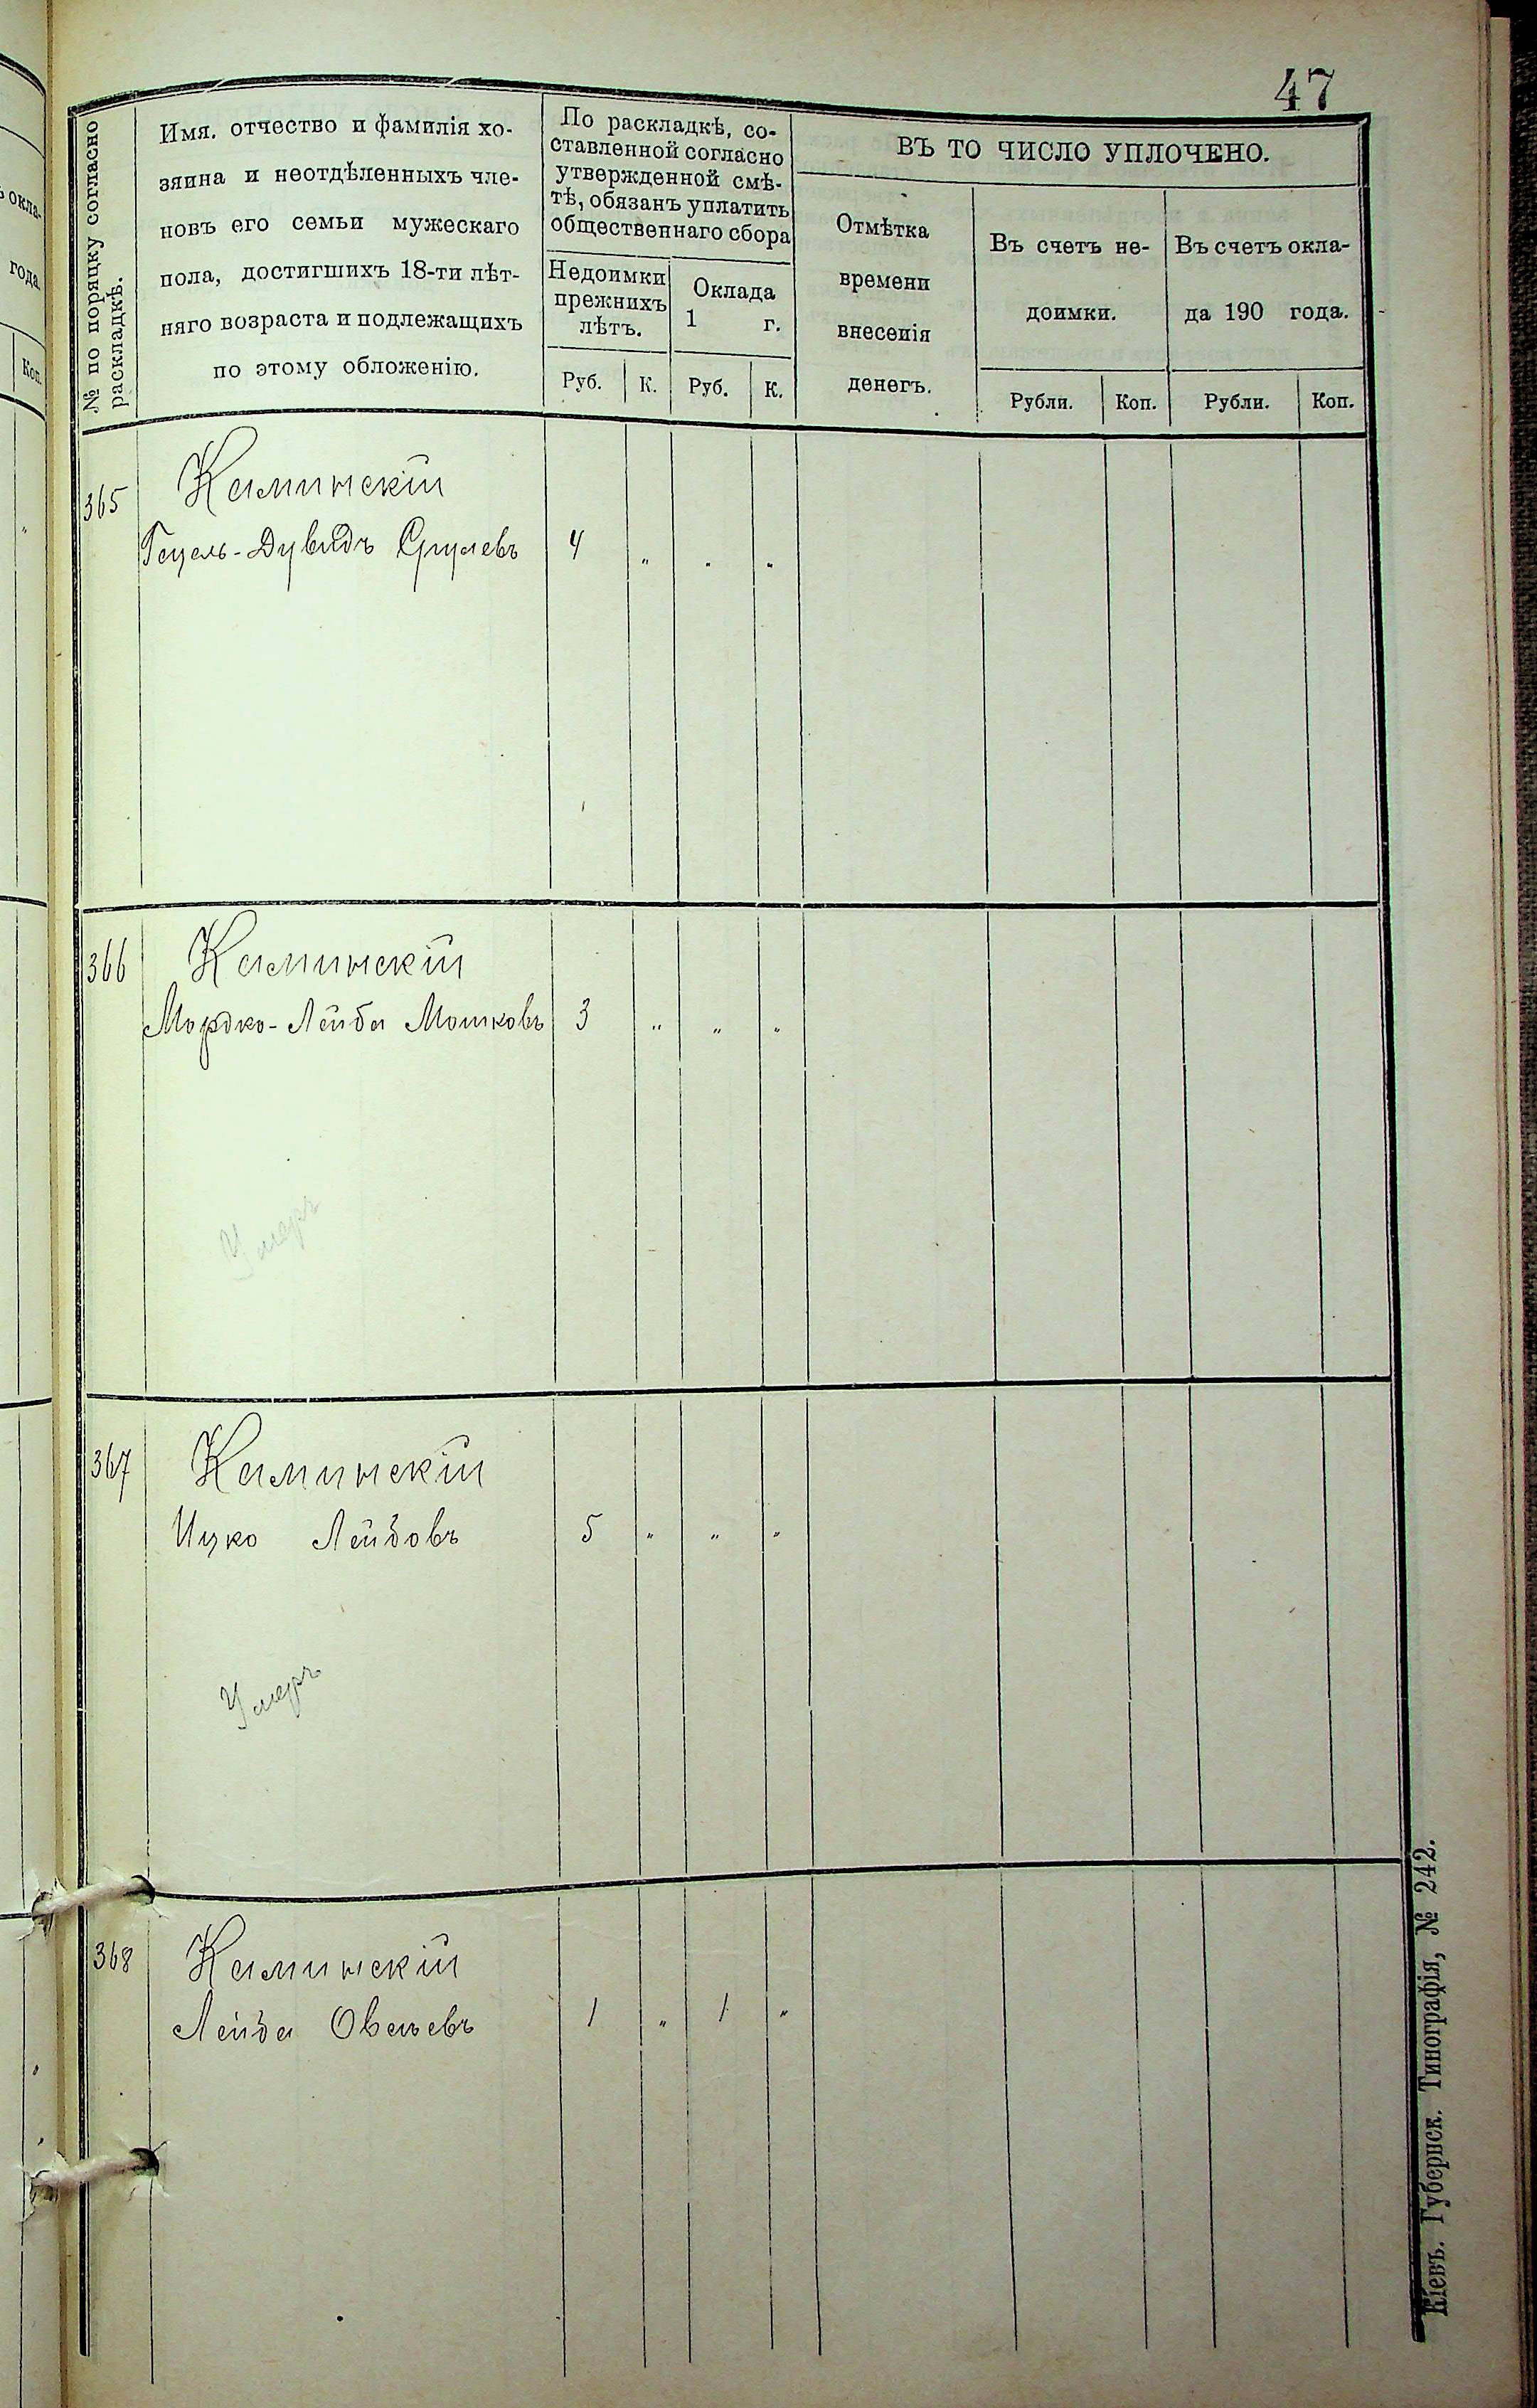 47
№ по порядку согласно
раскладкѣ.
Имя. отчество и фамилія хо-
зяина и неотдѣленныхъ чле-
новъ его семьи мужескаго
пола, достигшихъ 18-ти лѣт-
няго возраста и подлежащихъ
по этому обложенію.
По раскладкѣ, со-
ставленной согласно
утвержденной смѣ-
тѣ, обязанъ уплатить
общественнаго сбора
Недоимки
прежнихъ
лѣтъ.
Оклада
1 г.
Руб. К. Руб. К.
ВЪ ТО ЧИСЛО УПЛОЧЕНО.
Отмѣтка
времени
внесенія
денегъ.
Въ счетъ не-
доимки.
Въ счетъ окла-
да 190 года.
Рубли. Коп. Рубли. Коп.
365 Каминскій
Гецель-Дувидъ Срулевъ 4 „ „ „
366 Каминскій
Мордко-Лейба Мошковъ 3 „ „ „
Умеръ
367 Каминскій
Ицко Лейбовъ 5 „ „ „
Умеръ
368 Каминскій
Лейба Овсѣевъ 1 „ 1 „
Кіевъ. Губернск. Типографія, № 242.
окла-
года.
Коп.